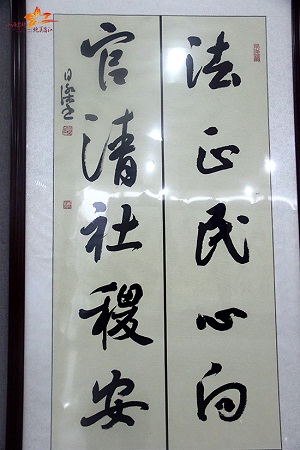 法正民心向
官清社稷安